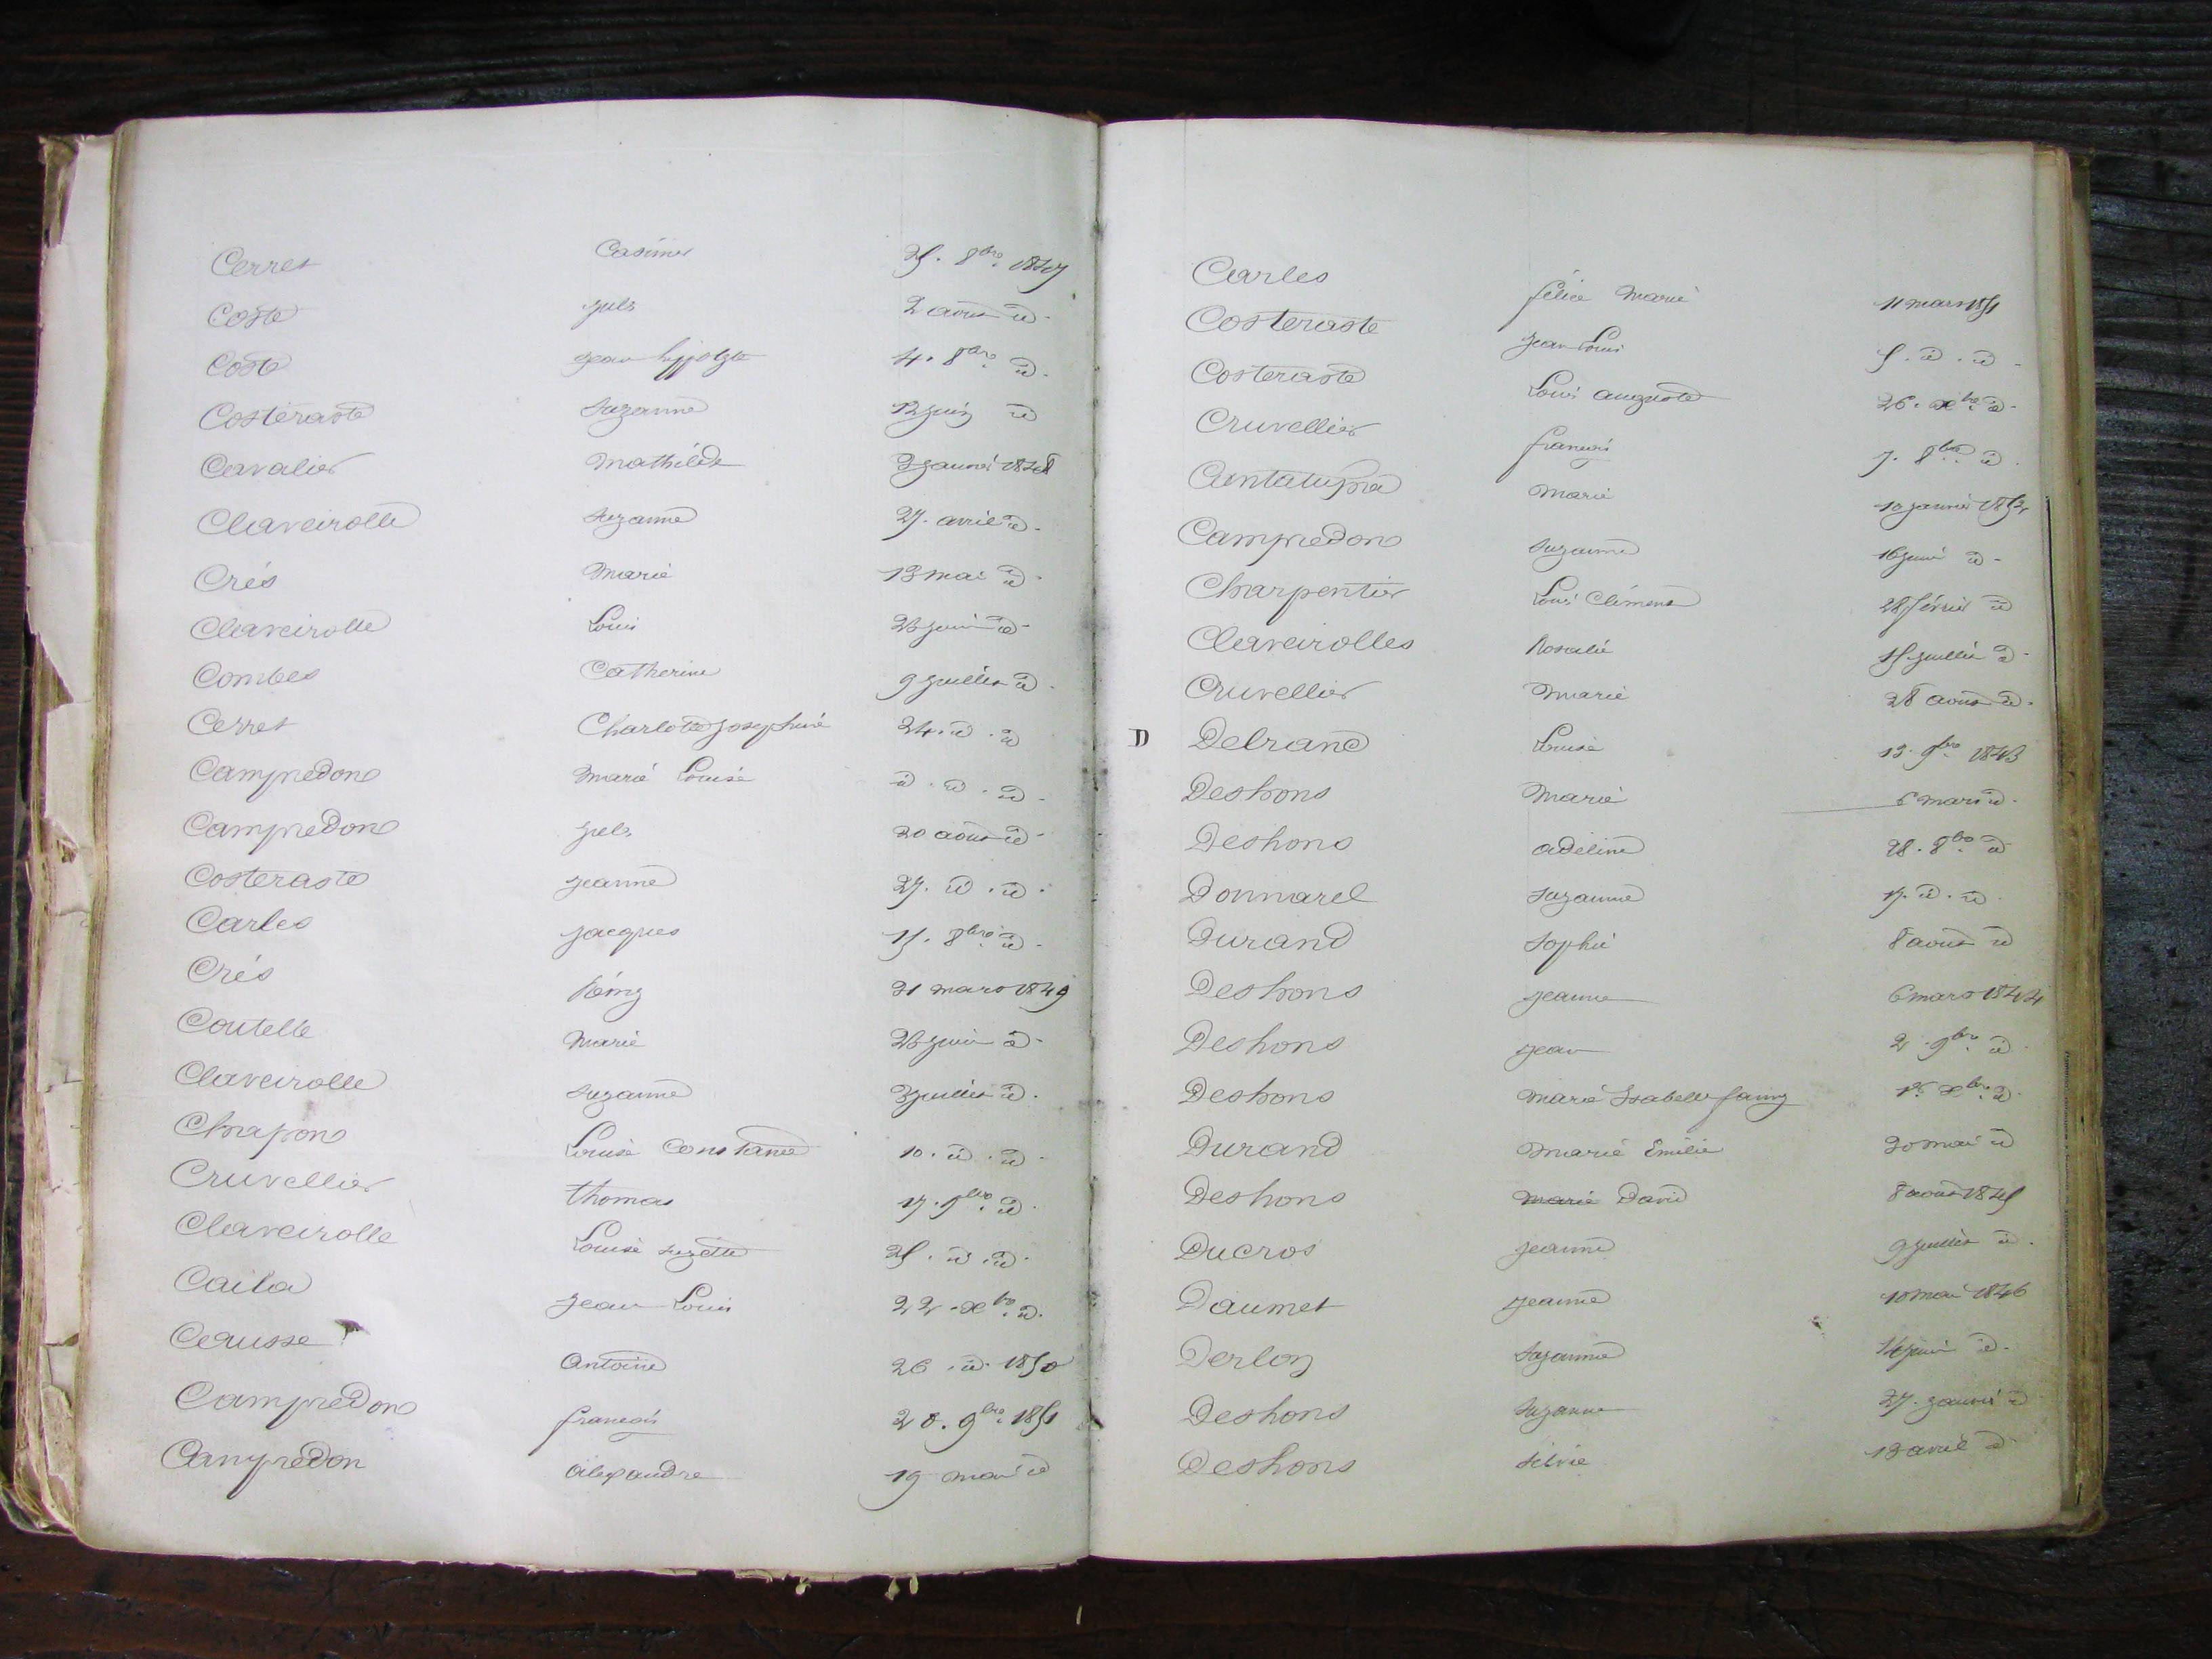 Cerret Casimir 25. 8bre 1847
Coste Jules 2 août id.
Coste Jean hyppolyte 4. 8bre id.
Costeraste Suzanne 12 juin id
Cavalier Mathilde 3 janvier 1848
Claveirolle Suzanne 27. avril id.
Crés Marie 13 mai id.
Claveirolle Louis 23 juin id.
Combes Catherine 9 juillet id.
Cerret Charlotte Joséphine 24. id. id
Campredon Marie Louise id. id. id.
Campredon Jules 20 août id.
Costeraste Jeanne 27. id. id.
Carles Jacques 15. 8bre id.
Crés Rémy 31 mars 1849
Coutelle Marie 23 juin id.
Claveirolle Suzanne 3 juillet id.
Chapon Louise Constance 10. id. id.
Cruvellier Thomas 17. 9bre id.
Claveirolle Louise Suzette 25. id. id.
Caila Jean Louis 22. xbre id.
Ceausse Antoine 26. id. 1850
Campredon françois 20. 9bre 1851
Campredon Alexandre 19 mai id
Carles félice Marie 11 mars 1851
Costeraste Jean Louis 5. id. id.
Costeraste Louis Auguste 26. xbre id.
Cruvellier françois 7. 8bre id.
Marie 10 janvier 1852
Campredon Suzanne 16 juin id.
Charpentier Louis Clément 28 février id
Claveirolles Rosalie 15 juillet id.
Cruvellier Marie 28 août id.
D Delrand Louise 13. 9bre 1843
Deshons Marie 6 mars id.
Deshons Adeline 28. 8bre id
Donnarel Suzanne 17. id. id.
Durand Sophie 8 août id
Deshons Jeanne 6 mars 1844
Deshons Jean 2. 9bre id.
Deshons Marie Isabelle fanny 16. xbre id.
Durand Marie Emilie 20 mai id
Deshons Marie David 8 août 1845
Ducros Jeanne 9 juillet id.
Daumet Jeanne 10 mai 1846
Derloy Suzanne 14 juin id.
Deshons Suzanne 27. janvier id
Deshons Silvie 13 avril id